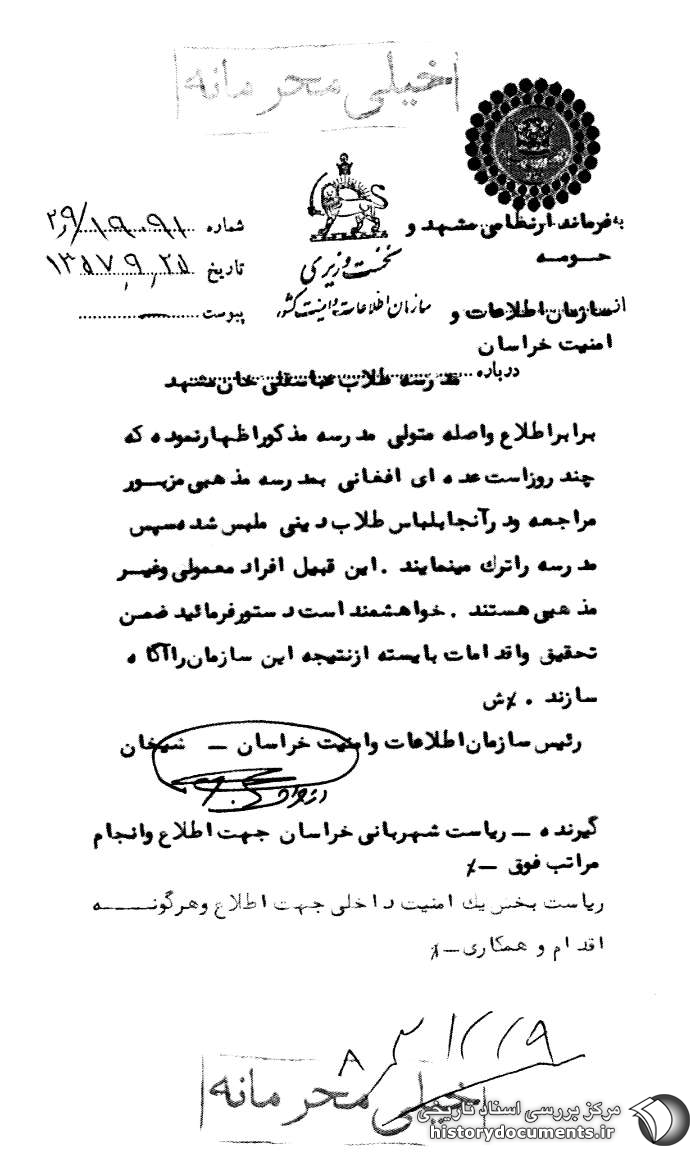 خیلی محرمانه
شماره ۲۹/۱۹۰۹۱
تاریخ ۱۳۵۷,۹,۲۵
پیوست
نخست وزیری
سازمان اطلاعات و امنیت کشور
به فرماندارنظامی مشهد و
حومه
از سازمان اطلاعات و
امنیت خراسان
درباره مدرسه طلاب عباسقلی خان مشهد
برابراطلاع واصله متولی مدرسه مذکوراظهارنموده که
چند روزاست عده ای افغانی بمدرسه مذهبی مزبور
مراجعه ودرآنجابلباس طلاب دینی ملبس شده سپس
مدرسه راترك مینمایند . این قبیل افراد معمولی وغیر
مذهبی هستند . خواهشمند است دستورفرمائید ضمن
تحقیق واقدامات بایسته ازنتیجه این سازمان راآگاه
سازند . ٪ش
رئیس سازمان اطلاعات وامنیت خراسان – شیخان
گیرنده – ریاست شهربانی خراسان جهت اطلاع وانجام
مراتب فوق –٪
ریاست بخش یك امنیت داخلی جهت اطلاع وهرگونه
اقدام و همکاری–٪
خیلی محرمانه
مرکز بررسی اسناد تاریخی
historydocuments.ir